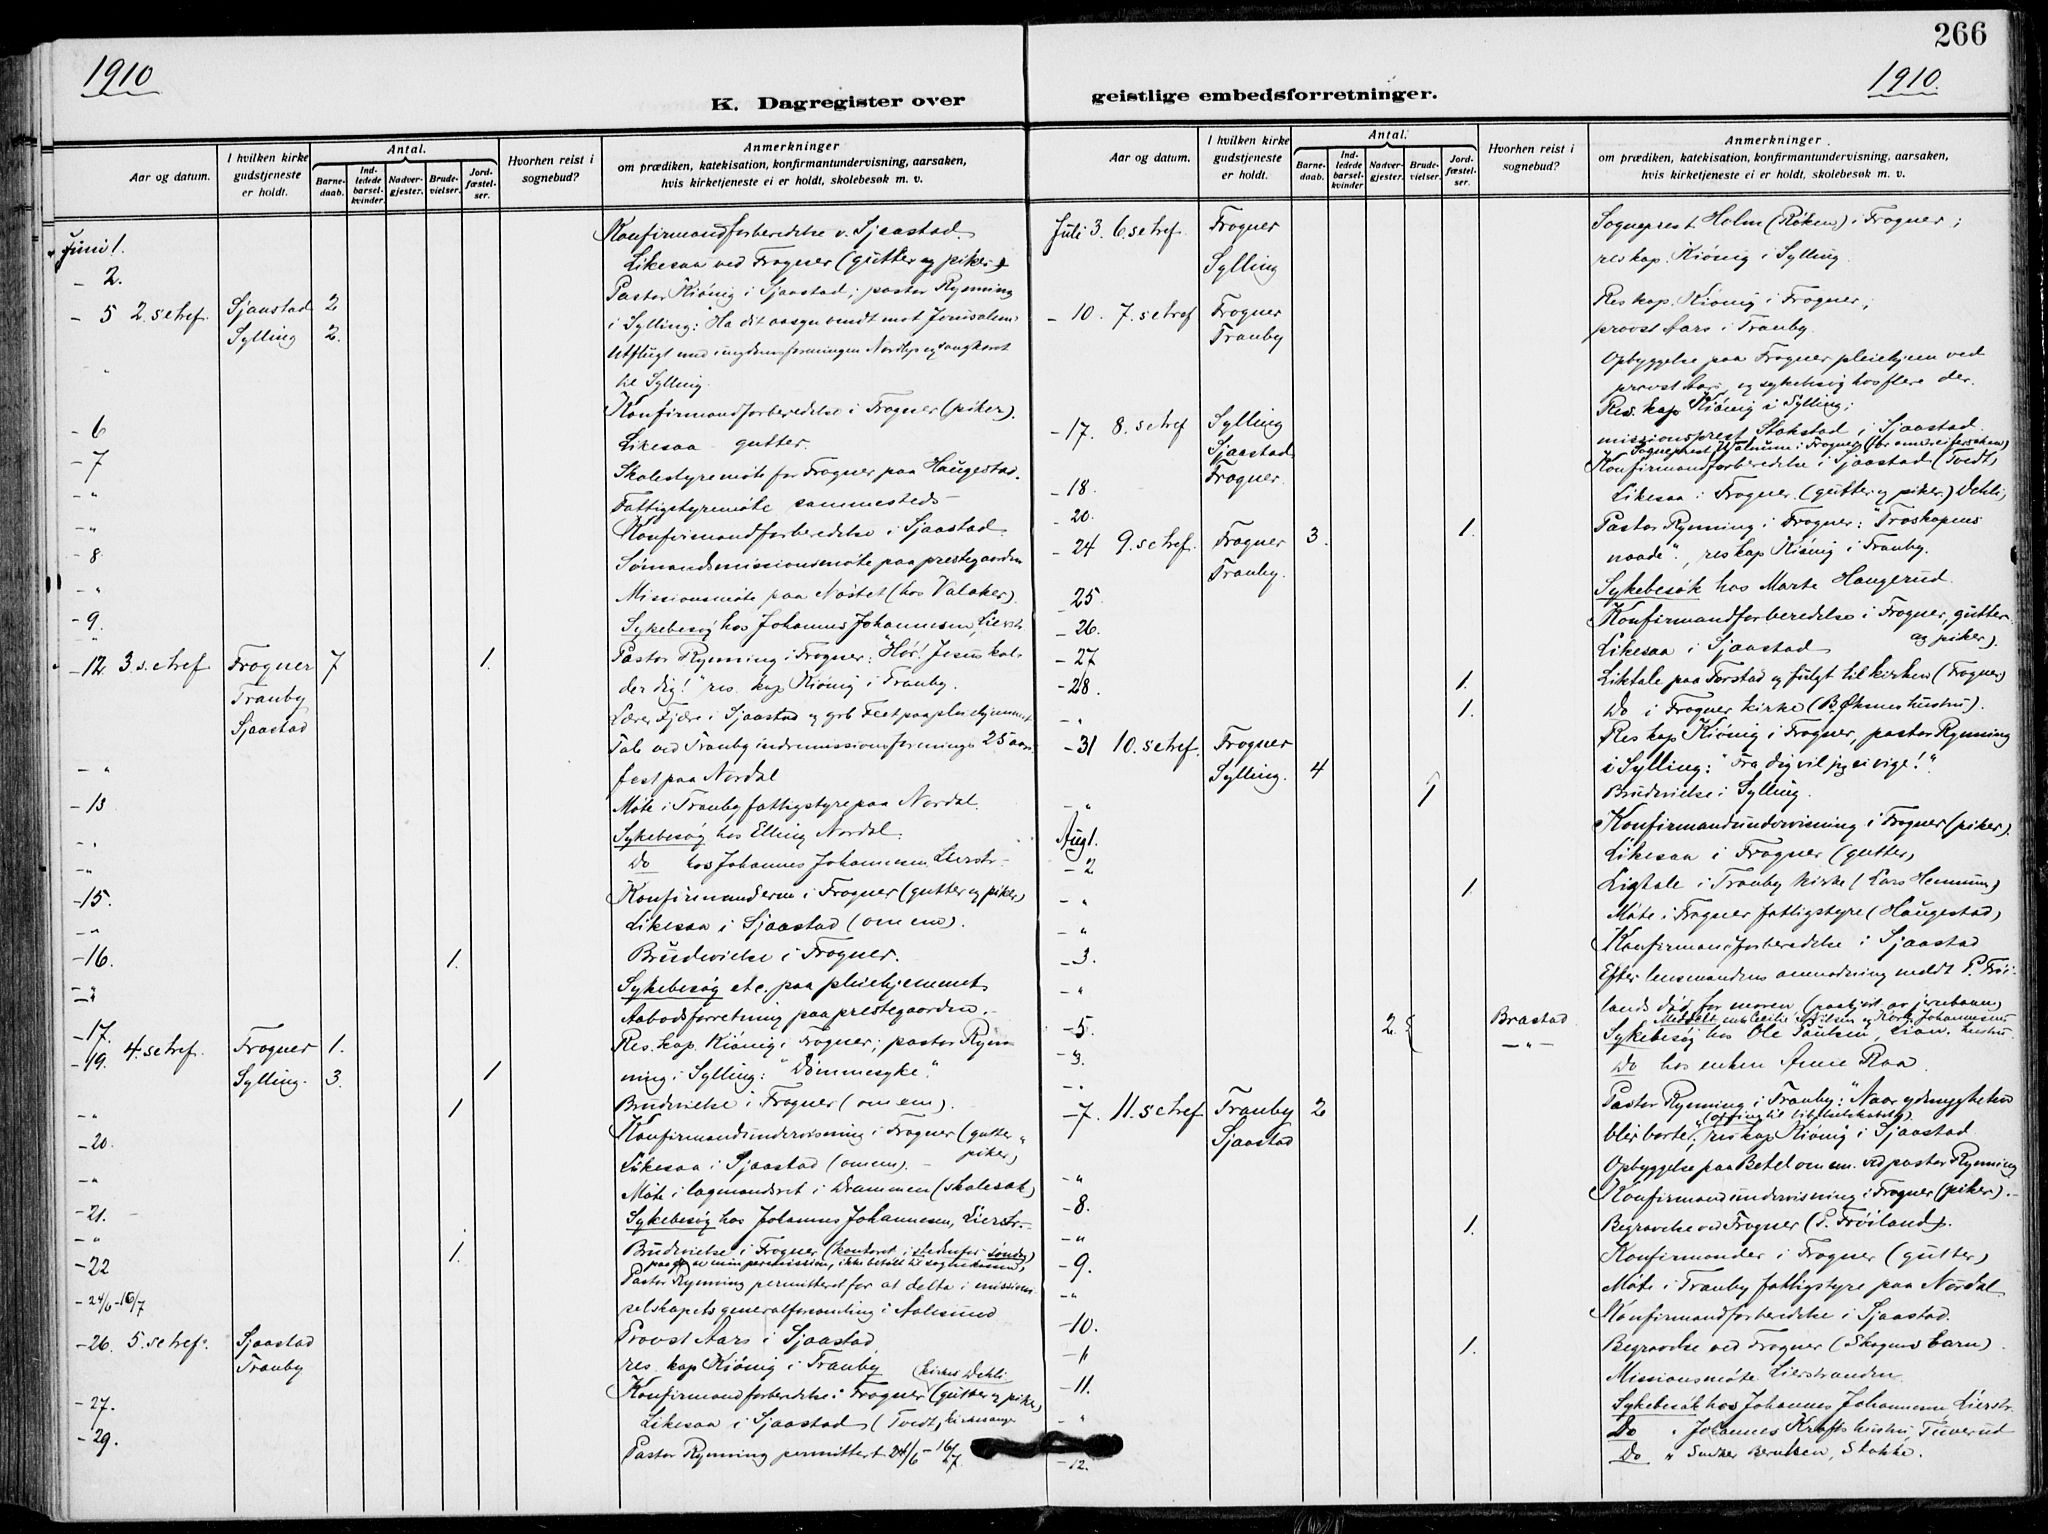 266
1910
1910.
K. Dagregister over
geistlige embedsforretninger.
Aar og datum.
I hvilken kirke gudstjeneste er holdt.
Antal.
Barnedaab.
Indledede barselkvinder.
Nadvergjester.
Brudevielser.
Jordfæstelser.
Hvorhen reist i sognebud?
Anmerkninger
om prædiken, katekisation, konfirmantundervisning, aarsaken,
hvis kirketjeneste ei er holdt, skolebesøk m. v.
Juni 1. Konfirmandforberedelse v. Sjaastad.
- 2. Likesaa ved Frogner (gutter og piker)
- 5 2. s e tref. Sjaastad 2 Pastor Kiønig i Sjaastad; pastor Rynning
Sylling 2. i Sylling: "Ha dit aasyn vendt mot Jerusalem
Utflugt med ungdomsforeningen Nordlys og sangkoret
til Sylling.
- 6 Konfirmandforberedelse i Frogner (piker).
- 7 Likesaa - gutter.
- " Skolestyremøte for Frogner paa Haugestad.
- " Fattigstyremøte sammesteds -
- 8 Konfirmandforberedelse i Sjaastad
- " Sømandsmissionsmøte paa prestegaarden
- 9. Missionsmøte paa Nøstet (hos Valaker).
" Sykebesøg hos Johannes Johannesen, Lierstr.
- 12. 3. s. e tref. Frogner 7 1. Pastor Rynning i Frogner: "Hør! Jesus kal-
Tranby der dig!" res. kap Kiønig i Tranby.
Sjaastad Lærer Fjære i Sjaastad og grb Feet paa pleiehjemmet
- " Tale ved Tranby indremissionsforenings 25 aars
fest paa Nordal
- 13 Møte i Tranby fattigstyre paa Nordal.
- " Sykebesøg hos Elling Nordal.
- " Do hos Johannes Johannesen Lierstr -
- 15. Konfirmanderne i Frogner (gutter og piker)
- " Likesaa i Sjaastad (om em).
- 16. 1. Brudevielse i Frogner.
- " Sykebesøg etc. paa pleiehjemmet
- 17. Aabodsforretning paa prestegaarden. -
- 19. 4. s e tref. Frogner 1. Res. kap. Kiønig i Frogner; pastor Ryn-
Sylling. 3. 1 ning i Sylling: "Dømmesyke"
- " 1 Brudevielse i Frogner (om em).
- 20. Konfirmandundervisning i Frogner (gutter "
piker)
- " Likesaa i Sjaastad (om em). -
- 21. Møte i lagmandsret i Drammen (skolesak)
- " Sykebesøg hos Johannes Johannesen, Lierstr. -
- 22 1. Brudevielse i Frogner (kontoret i stedenfor søndag)
- 24/6 - 16/7 Pastor Rynning permitteret for at delta i missions
selskapets generalforsamling i Aalesund
- 26. 5. s e tref. Sjaastad Provst Aars i Sjaastad
Tranby res. kap Kiønig i Tranby
(kirkes. Dehli
- 27. Konfirmandforberedelse i Frogner (gutter og piker)
- 29. Likesaa i Sjaastad (Tvedt, kirkesanger
Pastor Rynning permittert 24/6 - 16/7
Aar og datum.
I hvilken kirke gudstjeneste er holdt.
Antal.
Barnedaab.
Indledede barselkvinder
Nadvergjester.
Brudevielser.
Jordfæstelser.
Hvorhen reist i sognebud?
Anmerkninger
om prædiken, katekisation, konfirmantundervisning, aarsaken,
hvis kirketjeneste ei er holdt, skolebesøk m. v.
Juli 3. 6. s e tref. Frogner Sogneprest Holm (Røken) i Frogner;
Sylling res kap. Kiønig i Sylling.
- 10. 7. s e tref Frogner Res kap. Kiønig i Frogner;
Tranby provst Aars i Tranby.
Opbyggelse paa Frogner pleiehjem ved
provst Aars, og sykebesøg hos flere der.
- 17. 8. s e tref Sylling Res. kap Kiønig i Sylling;
Sjaastad missionsprest Stokstad i Sjaastad
Frogner.
- 18. Konfirmandforberedelse i Sjaastad (Tvedt)
- 20. Likesaa i Frogner. (gutter og piker.) Dehli;
- 24 9. s e tref. Frogner 3. 1. Pastor Rynning i Frogner: "Troskapens
Tranby. naade", res kap Kiønig i Tranby.
- 25 Sykebesøk hos Marte Haugerud.
- 26. Konfirmandforberedelse i Frogner, gutter
og piker).
- 27 Likesaa i Sjaastad
- 28. 1. Liktale paa Torstad og fulgt til kirken (Frogner)
- " 1. Do i Frogner kirke (B. Øksnes hustru).
- 31 10. s e tref. Frogner Res kap Kiønig i Frogner, pastor Rynning
Sylling. 4 i Sylling: "Fra dig vil jeg ei vige!"
- " 1 Brudevielse i Sylling.
Aug 1. Konfirmandundervisning i Frogner (piker).
- 2 Likesaa i Frogner (gutter)
- " 1. Ligtale i Tranby kirke (Lars Hennum)
- " Møte i Frogner fattigstyre (Haugestad)
- 3. Konfirmandforberedelse i Sjaastad
- " Efter lensmandens anmodning meldt P. Frøi-
lands død for moren (paakjørt av jernbanen)
- 5. 2. { Brastad Sykebesøg hos Ole Paulsen, Lian.
- " - " - Do hos enken Anne Raa.
- 7. 11. s e tref. Tranby 2 Pastor Rynning i Tranby: "Naar ydmygheten
Sjaastad blir borte", res kap Kiønig i Sjaastad
- " Opbyggelse paa Betel om em. ved pastor Rynning
- 8. Konfirmandundervisning i Frogner (piker). -
- " 1. Begravelse ved Frogner (P. Frøiland).
- 9. Konfirmander i Frogner (gutter)
- " Møte i Tranby fattigstyre paa Nordal
- 10. Konfirmandforberedelse i Sjaastad.
- " 1. Begravelse ved Frogner (Skognes barn).
- 11. Missionsmøte Lierstranden.
- " Sykebesøk hos Johannes Johannesen Lierstr.
Do " Johannes Krafts hustru, Tuverud
- 12. Do " Snekker Berntsen, Stokke.